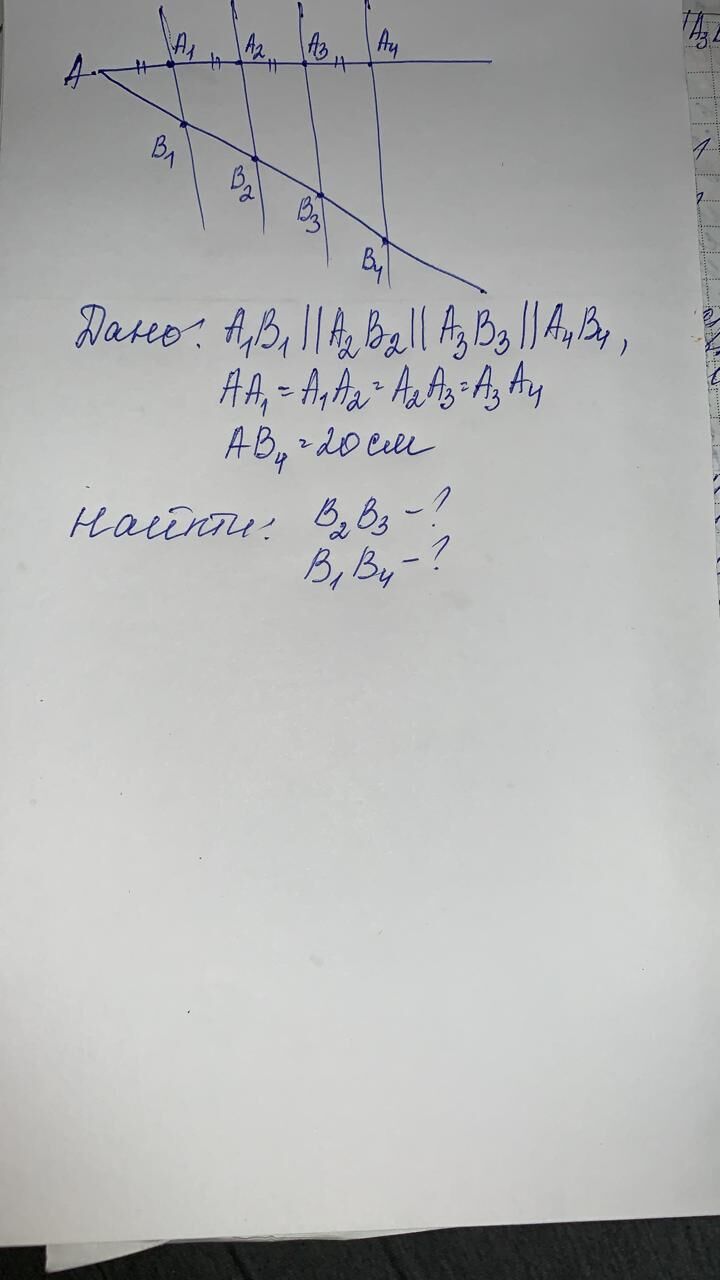 A₁ A₂ A₃ A₄
A
B₁
B₂
B₃
B₄
Дано: A₁B₁ || A₂B₂ || A₃B₃ || A₄B₄,
AA₁ = A₁A₂ = A₂A₃ = A₃A₄
AB₄ = 20 см
Найти: B₂B₃ - ?
B₁B₄ - ?